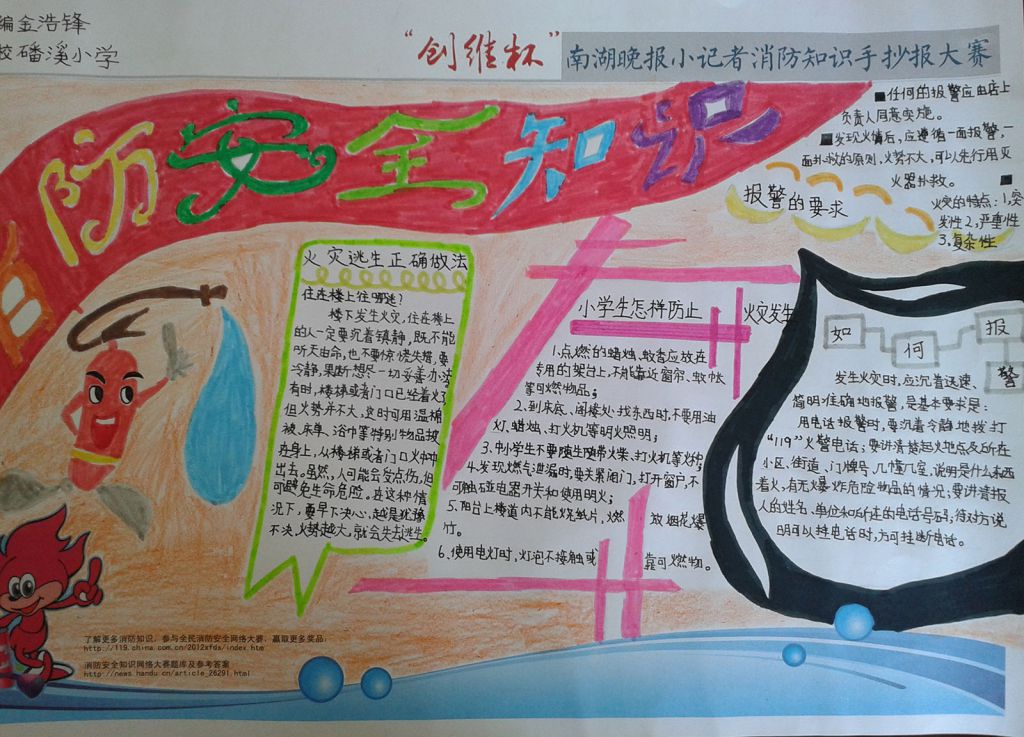 编金浩锋
校磻溪小学
“创维杯”南湖晚报小记者消防知识手抄报大赛
防安全知识
■任何的报警应由店上
负责人同意实施。
■发现火情后，应遵循一面报警，一
面扑救的原则，火势不大，可以先行用灭
火器扑救。
■
火灾的特点：1,突
发性2,严重性
3.复杂性
报警的要求
火灾逃生正确做法
住在楼上往哪逃？
楼下发生火灾，住在楼上
的人一定要沉着镇静，既不能
听天由命，也不要惊慌失措，要
冷静，果断想尽一切妥善办法
有时，楼梯或者门口已经着火了
但火势并不大，这时可用湿棉
被、床单、浴巾等特别物品披
在身上，从楼梯或者门口火中冲
出去。虽然，人可能会受点伤，但
可避免生命危险。在这种情
况下，要早下决心，越是犹豫
不决，火势越大，就会失去逃生。
小学生怎样防止火灾发生
1.点燃的蜡烛、蚊香应放在
专用的架台上，不能靠近窗帘、蚊帐
等可燃物品；
2.到床底、阁楼找东西时，不要用油
灯、蜡烛、打火机等明火照明；
3.中小学生不要随生随带火柴、打火机等火种；
4.发现燃气泄漏时，要关紧阀门，打开窗户，不
可触碰电器开关和使用明火；
5.阳台上楼道内不能烧纸片，燃放烟花爆
竹。
6.使用电灯时，灯泡不接触或靠可燃物。
如何报警
发生火灾时，应沉着迅速、
简明准确地报警，是基本要求是：
用电话报警时，要沉着冷静地拨打
“119”火警电话；要讲清楚起火地点及所在
小区、街道、门牌号、几幢几室，说明是什么东西
着火，有无爆炸危险物品的情况；要讲清报
人的姓名、单位和所在的电话号码；待对方说
明可以挂电话时，方可挂断电话。
了解更多消防知识，参与全民消防安全网络大赛，赢取更多奖品：
http://119.china.com.cn/2012xfds/index.htm
消防安全知识网络大赛题库及参考答案
http://news.handu.cn/article_26291.html